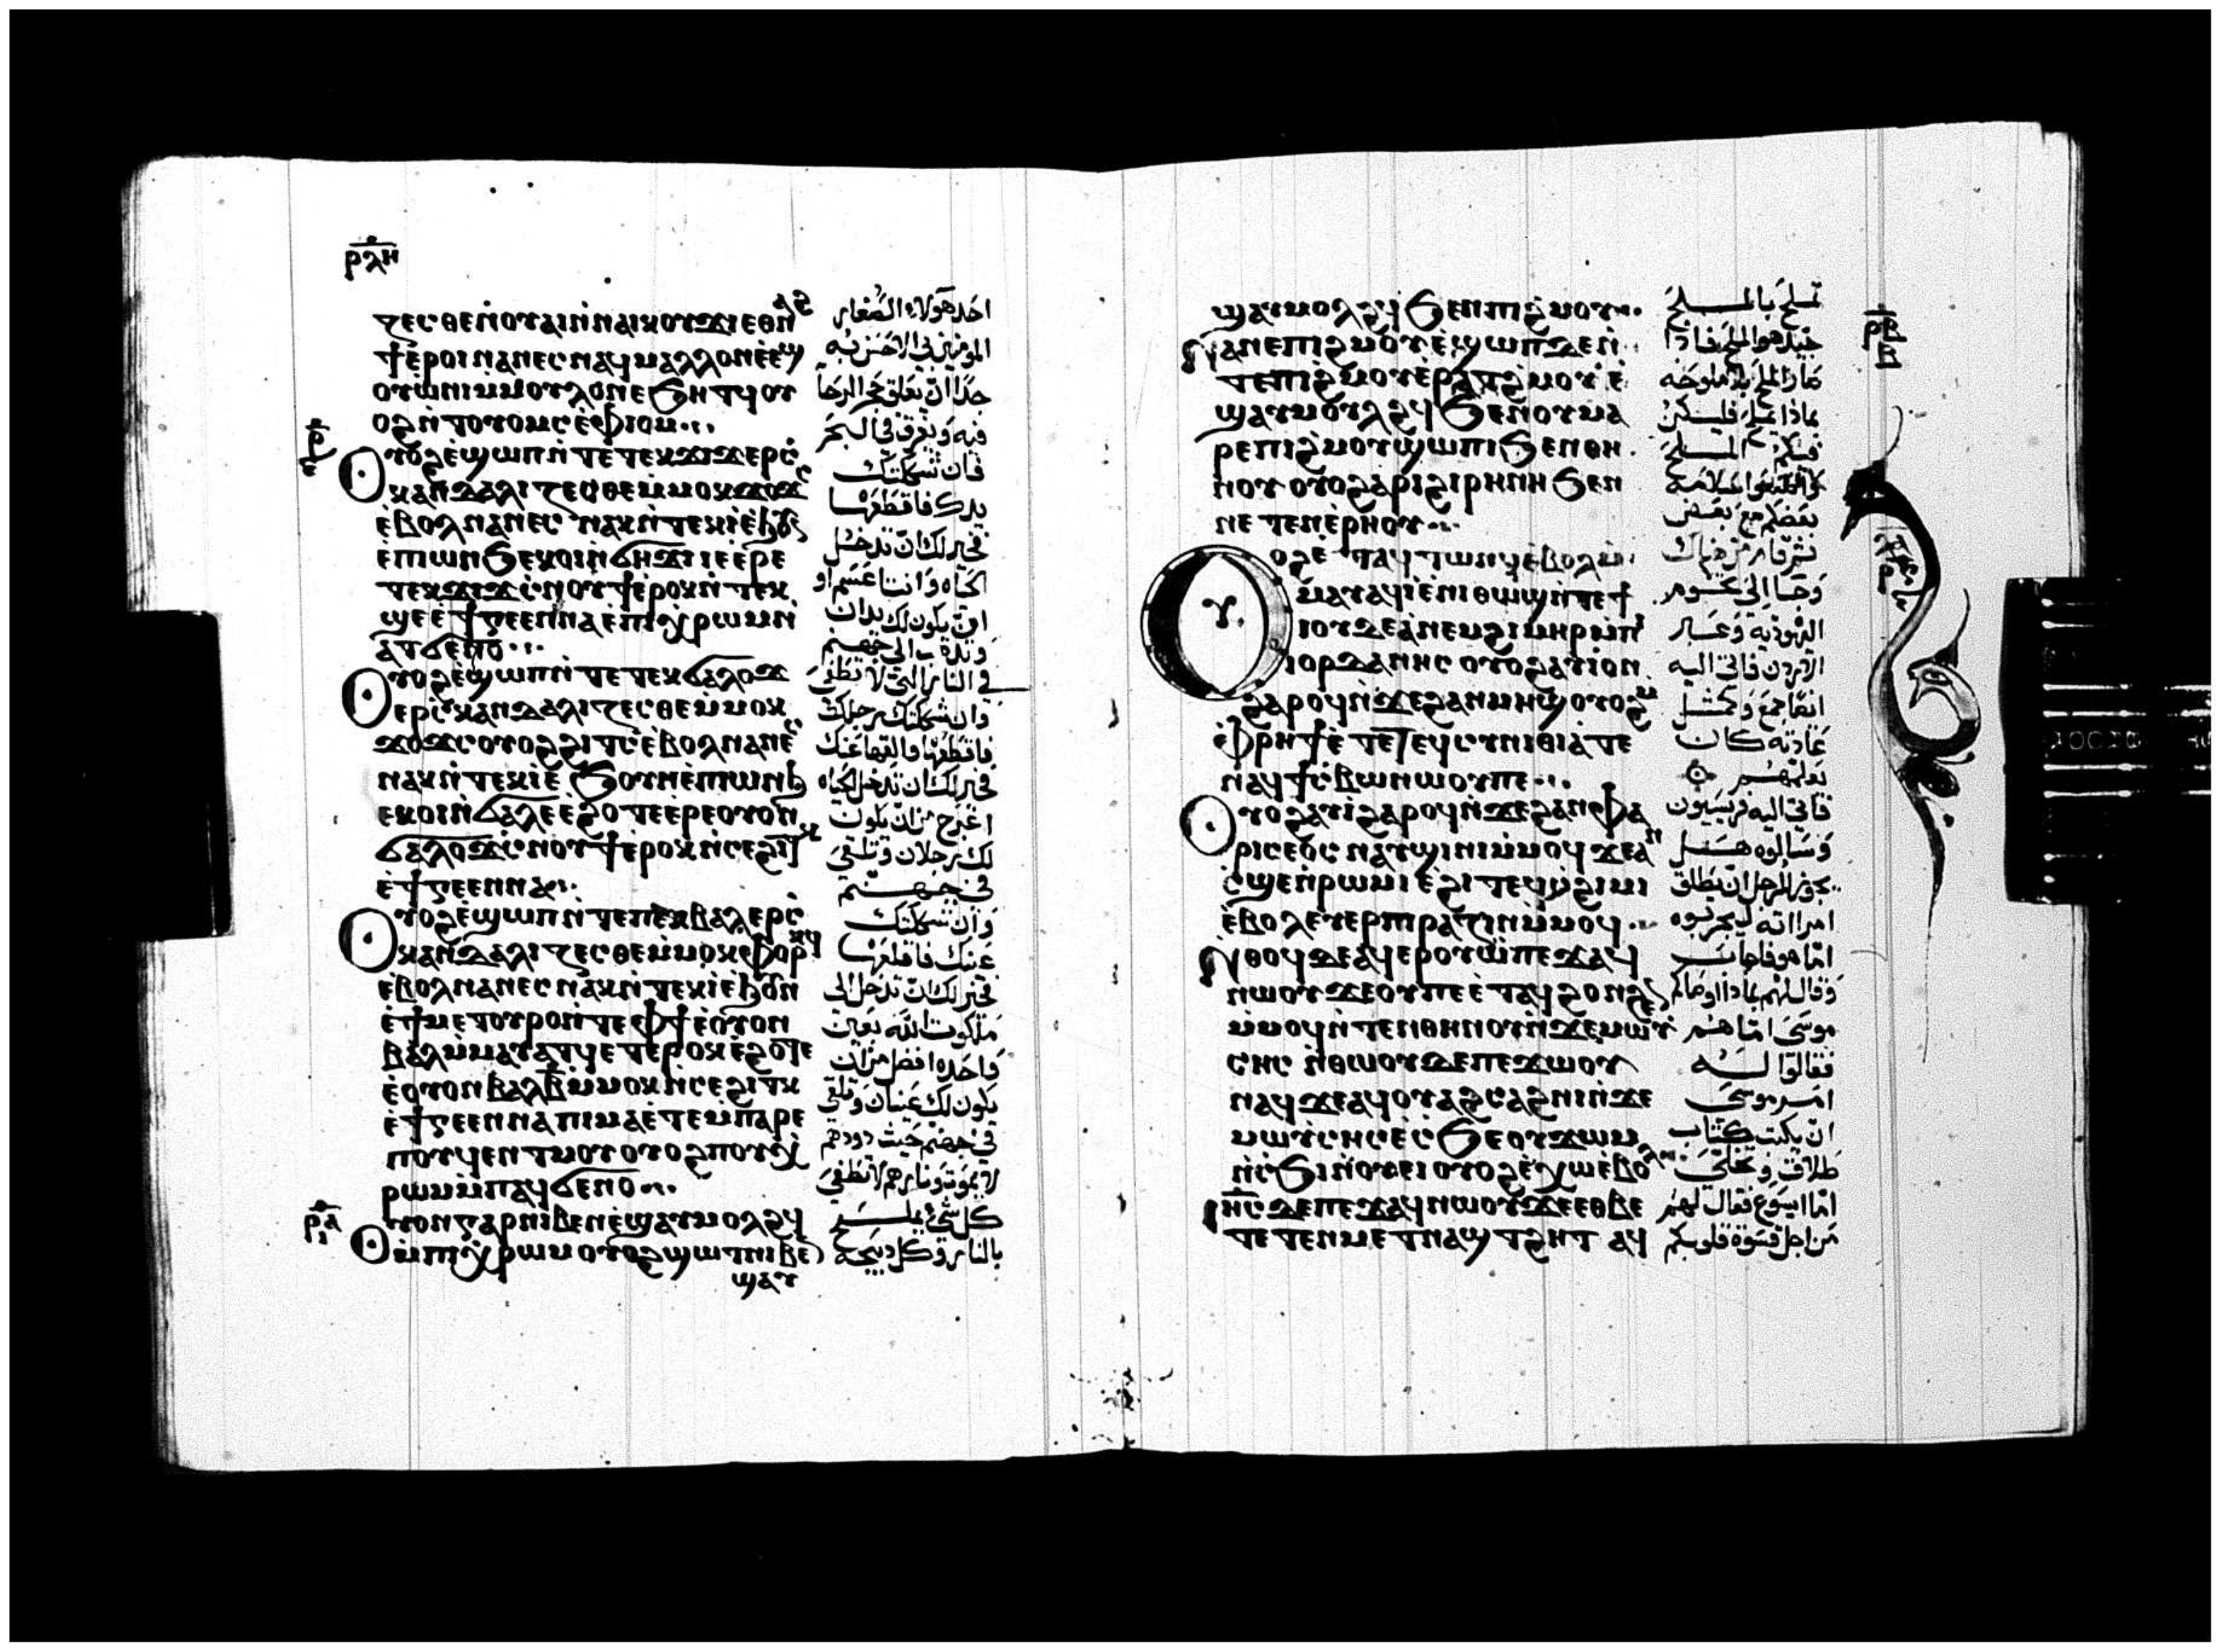 ⲣⲗⲏ
ⲍⲉⲥⲑⲉⲛⲟⲩⲁⲓⲛ̀ⲛⲁⲓⲕⲟⲩϫⲓⲉⲑⲛⲁϩ
ϯⲉ̀ⲣⲟⲓⲛⲁⲛⲉⲥⲛⲁϥⲙⲁⲗⲗⲟⲛⲉ̀ⲉϣ
ⲟⲩⲱ̀ⲛⲓⲙ̀ⲙⲟⲩⲗⲟⲛⲉϧⲏⲧϥⲟⲩ
ⲟϩⲛ̀ⲧⲟⲩⲟⲙⲥⲉ̀ⲫⲓⲟⲙ
ⲣ̅
ⲉ
Ⲟⲩⲟϩⲉ̀ϣⲱⲡⲛ̀ⲧⲉⲧⲉⲕϫⲓϫⲉⲣⲥ
ⲕⲁⲛⲇⲁⲗⲓⲍⲉⲥⲑⲉⲙ̀ⲙⲟⲕϫⲟϫⲥ
ⲉ̀ⲃⲟⲗⲛⲁⲛⲉⲥ ⲛⲁⲕⲛ̀ⲧⲉⲕⲓⲉ̀ϧⲟⲩⲛ
ⲉⲡⲱⲛϧⲉⲕⲟⲓⲛ̀ϭⲏϫⲓⲓⲉⲉ̀ⲣⲉ
ⲧⲉⲕϫⲓϫⲥ̀ⲛⲟⲩϯⲉ̀ⲣⲟⲕⲛ̀ⲧⲉⲕ
ϣⲉⲉ̀ϯⲅⲉⲉⲛⲛⲁⲉ̀ⲡⲓⲭⲣⲱⲙⲛ̀
ⲁⲧϭⲉⲛⲟ
Ⲟⲩⲟϩⲉ̀ϣⲱⲡⲛ̀ⲧⲉⲧⲉⲕϭⲁⲗⲟϫ
ⲉⲣⲥ̀ⲕⲁⲛⲇⲁⲗⲓⲍⲉⲥⲑⲉⲙ̀ⲙⲟⲕ
ϫⲟϫⲥⲟⲩⲟϩϩⲓⲧⲥⲉ̀ⲃⲟⲗⲛⲁⲛⲉⲥ
ⲛⲁⲕⲛ̀ⲧⲉⲕⲓⲉ̀ϧⲟⲩⲛⲉ̀ⲡⲱⲛϧ
ⲉⲕⲟⲓⲛ̀ϭⲁⲗⲉⲉ̀ϩⲟⲧⲉⲉ̀ⲣⲉⲟⲩⲟⲛ
ϭⲁⲗⲟϫⲥ̀ⲛⲟⲩϯⲉ̀ⲣⲟⲕⲛ̀ⲥⲉϩⲓⲧⲕ
ⲉ̀ϯⲅⲉⲉⲛⲛⲁ
Ⲟⲩⲟϩⲉ̀ϣⲱⲡⲛ̀ⲧⲉⲡⲉⲕⲃⲁⲗⲉⲣⲥ̀
ⲕⲁⲛⲇⲁⲗⲓⲍⲉⲥⲑⲉⲙ̀ⲙⲟⲕⲫⲟⲣⲕϥ
ⲉ̀ⲃⲟⲗⲛⲁⲛⲉⲥⲛⲁⲕⲛ̀ⲧⲉⲕⲓⲉ̀ϧⲟⲩⲛ
ⲉ̀ϯⲙⲉⲧⲟⲩⲣⲟⲛ̀ⲧⲉⲫϯⲉ̀ⲟⲩⲟⲛ
ⲃⲁⲗⲙ̀ⲙⲁⲩⲁⲧϥⲉⲧⲉⲣⲟⲕⲉ̀ϩⲟⲧⲉ
ⲉ̀ⲟⲩⲟⲛⲃⲁⲗⲃ̅ⲙ̀ⲙⲟⲕⲛ̀ⲥⲉϩⲓⲧⲕ
ⲉ̀ϯⲅⲉⲉⲛⲛⲁⲡⲓⲙⲁⲉ̀ⲧⲉⲙ̀ⲡⲁⲣⲉ
ⲡⲟⲩϥⲉⲛⲧⲙⲟⲩⲟⲩⲟϩⲡⲟⲩⲭ
ⲣⲱⲙⲙ̀ⲡⲁϥϭⲉⲛⲟ
ⲣ̅ⲁ̅
ⲓ
Ⲟⲩⲟⲛⲅⲁⲣⲛⲓⲃⲉⲛⲉ̀ϣⲁⲩⲙⲟⲗϩϥ
ⲙ̀ⲡⲓⲭⲣⲱⲙⲟⲩⲟϩϣⲱⲧⲛⲓⲃⲉ
ϣⲁⲩ
احد هولاء الصغار
المومنين بي الاحسن له
جدا ان يعلق حجر الرحا
فيه ويغرق في البحر
فان شككتك
يدك فاقطعها
فخير لك ان تدخل
الحياه وانت اعسم او
ان يكون لك يدان
وتذهب الى جهنم
في النار التي لا تطفى
وان شككتك رجلك
فاقطعها والقها عنك
فخير لك ان تدخل الحياه
اعرج من ان يكون
لك رجلان وتلقى
في جهنم
وان شككتك
عينك فاقلعها
فخير لك ان تدخل الى
ملكوت الله بعين
واحده افضل من ان
يكون لك عينان وتلقى
في جهنم حيث دودهم
لا يموت ونارهم لا تطفى
كل شي يملح
بالنار وكل ذبيحة
ϣⲁⲩⲙⲟⲗϩϥϧⲉⲛⲡⲓϩⲙⲟⲩ
Ⲛⲁⲛⲉⲡⲓϩⲙⲟⲩⲉ̀ϣⲱⲡⲇⲉⲛ̀
ⲧⲉⲡⲓϩⲙⲟⲩⲉⲣⲁⲧϩⲙⲟⲩⲉ̀
ϣⲁⲩⲙⲟⲩⲗϩϥϧⲉⲛⲟⲩⲙⲁ
ⲣⲉⲡⲓϩⲙⲟⲩϣⲱⲡⲓϧⲉⲛⲑⲏ
ⲛⲟⲩⲟⲩⲟϩⲁⲣⲓϩⲓⲣⲏⲛⲏϧⲉⲛ
ⲛⲉⲧⲉⲛⲉ̀ⲣⲏⲟⲩ
Ⲟⲩⲟϩⲉ̀ⲧⲁϥⲧⲱⲛϥⲉ̀ⲃⲟⲗⲙ̀
ⲙⲁⲩⲁϥⲓⲉ̀ⲛⲓⲑⲱϣⲛ̀ⲧⲉϯ
ⲓⲟⲩⲇⲉⲁⲛⲉⲙϩⲓⲙⲏⲣⲙ̀ⲡⲓ
ⲓⲟⲣⲇⲁⲛⲏⲥ ⲟⲩⲟϩⲁⲩⲓⲟⲛ
ϩⲁⲣⲟϥⲛ̀ϫⲉϩⲁⲛⲙⲏϣⲟⲩⲟϩⲙ
ⲫⲣⲏϯⲉ̀ⲧⲉⲧⲉϥⲥⲩⲛⲓⲑⲓⲁⲧⲉ
ⲛⲁϥϯⲥ̀ⲃⲱⲛⲱⲟⲩⲡⲉ
Ⲟⲩⲟϩⲁⲩⲓ̀ϩⲁⲣⲟϥⲛ̀ϫⲉϩⲁⲛⲫⲁ
ⲣⲓⲥⲉⲟⲥ ⲛⲁⲩϣⲓⲛⲓⲙ̀ⲙⲟϥϫⲉⲁⲛ
ⲥ̀ϣⲉⲛ̀ⲣⲱⲙⲓⲉ̀ϩⲓⲧⲉϥⲥ̀ϩⲓⲙⲓ
ⲉ̀ⲃⲟⲗⲉⲩⲉⲣⲡⲓⲣⲁⲍⲓⲛⲙ̀ⲙⲟϥ
Ⲛⲑⲟϥⲇⲉⲁϥⲉⲣⲟⲩⲱ̀ⲡⲉϫⲁϥ
ⲛⲱⲟⲩϫⲉⲟⲩⲡⲉⲉ̀ⲧⲁϥϩⲟⲛϩⲉⲛ
ⲙ̀ⲙⲟϥⲛ̀ⲧⲉⲛⲑⲏⲛⲟⲩⲛ̀ϫⲉⲙⲱⲩ̀
ⲥⲏⲥ ⲛ̀ⲑⲱⲟⲩⲇⲉⲡⲉϫⲱⲟⲩ
ⲛⲁϥϫⲉⲁϥⲟⲩⲁϩⲥⲁϩⲛⲓⲛ̀ϫⲉ
ⲙⲱⲩ̀ⲥⲏⲥⲉ̀ⲥ̀ϧⲉⲟⲩϫⲱⲙ
ⲛ̀ⲥϧⲓⲛ̀ⲟⲩⲉⲓⲟⲩⲟϩⲉ̀ⲭⲱⲉ̀ⲃⲟⲗ
Ⲓⲏ̅ⲥ̅ⲇⲉⲡⲉϫⲁϥⲛⲱⲟⲩϫⲉⲉⲑⲃⲉ
ⲧⲉⲧⲉⲛⲙⲉⲧⲛⲁϣⲧϩⲏⲧ ⲁϥ
تملح بالملح
جيد هو الملح فاذا
صار الملح بلا ملوحه
بماذا يملح فليكن
فيكم الملح
بعضكم مع بعض
ثم قام من هناك
وجا الى تخوم
اليهودية وعبر
الاردن فاتى اليه
ايضا جمع وكمثل
عادته كان
يعلمهم
فاتى اليه فريسيون
وسالوه هل
يجوز للرجل ان يطلق
امراته ليجربوه
اما هو فاجاب
وقال لهم بماذا اوصاكم
موسى اما هم
فقالوا له
امر موسى
ان يكتب كتاب
طلاق وتخلى
اما ايسوع فقال لهم
من اجل قسوة قلوبكم
ⲣ̅ⲃ̅
ⲃ